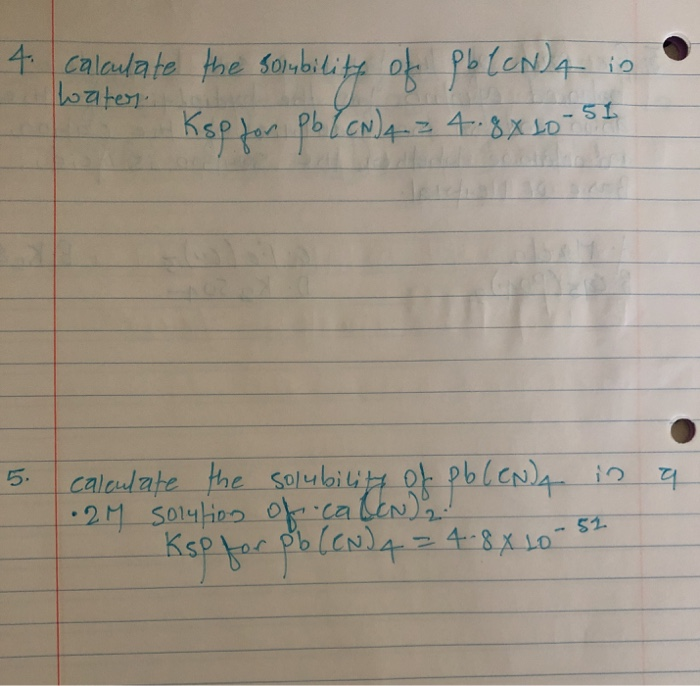 4. Calculate the solubility of Pb(CN)4 in
water.
Ksp for Pb(CN)4 = 4.8 x 10-51
5. calculate the solubility of pb(CN)4 in a
.2M solution of ca(CN)2.
Ksp for pb(CN)4 = 4.8 x 10-51